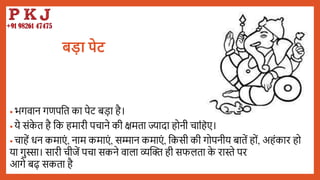 P K J
+91 98261 47475
बड़ा पेट
• भगवान गणपति का पेट बड़ा है।
• ये संकेत है कि हमारी पचाने की क्षमता ज्यादा होनी चाहिए।
• चाहें धन कमाएं, नाम कमाएं, सम्मान कमाएं, किसी की गोपनीय बातें हों, अहंकार हो
या गुस्सा। सारी चीजें पचा सकने वाला व्यक्ति ही सफलता के रास्ते पर
आगे बढ़ सकता है